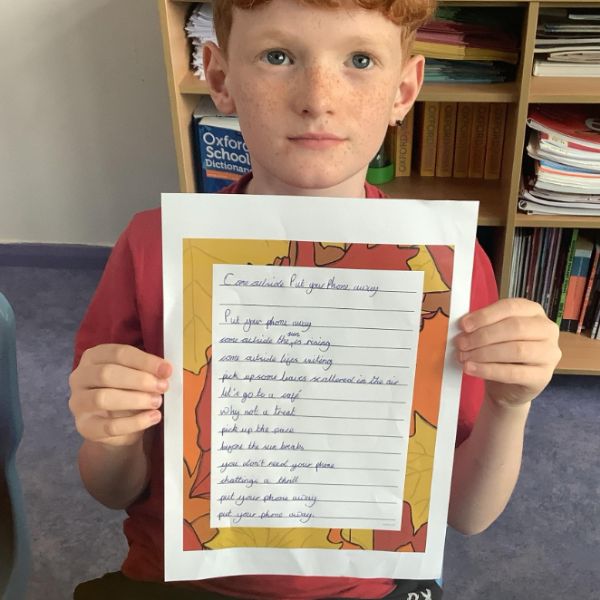 Oxford
School
Dictionary
OXFORD
OXFORD
Come outside Put your Phone away
Put your phone away
come outside the sun is rising
come outside lifes waiting
pick up some leaves scattered in the air
let's go to a café
why not a treat
pick up the pace
before the sun breaks
you don't need your phone
chattings a thrill
put your phone away
put your phone away.